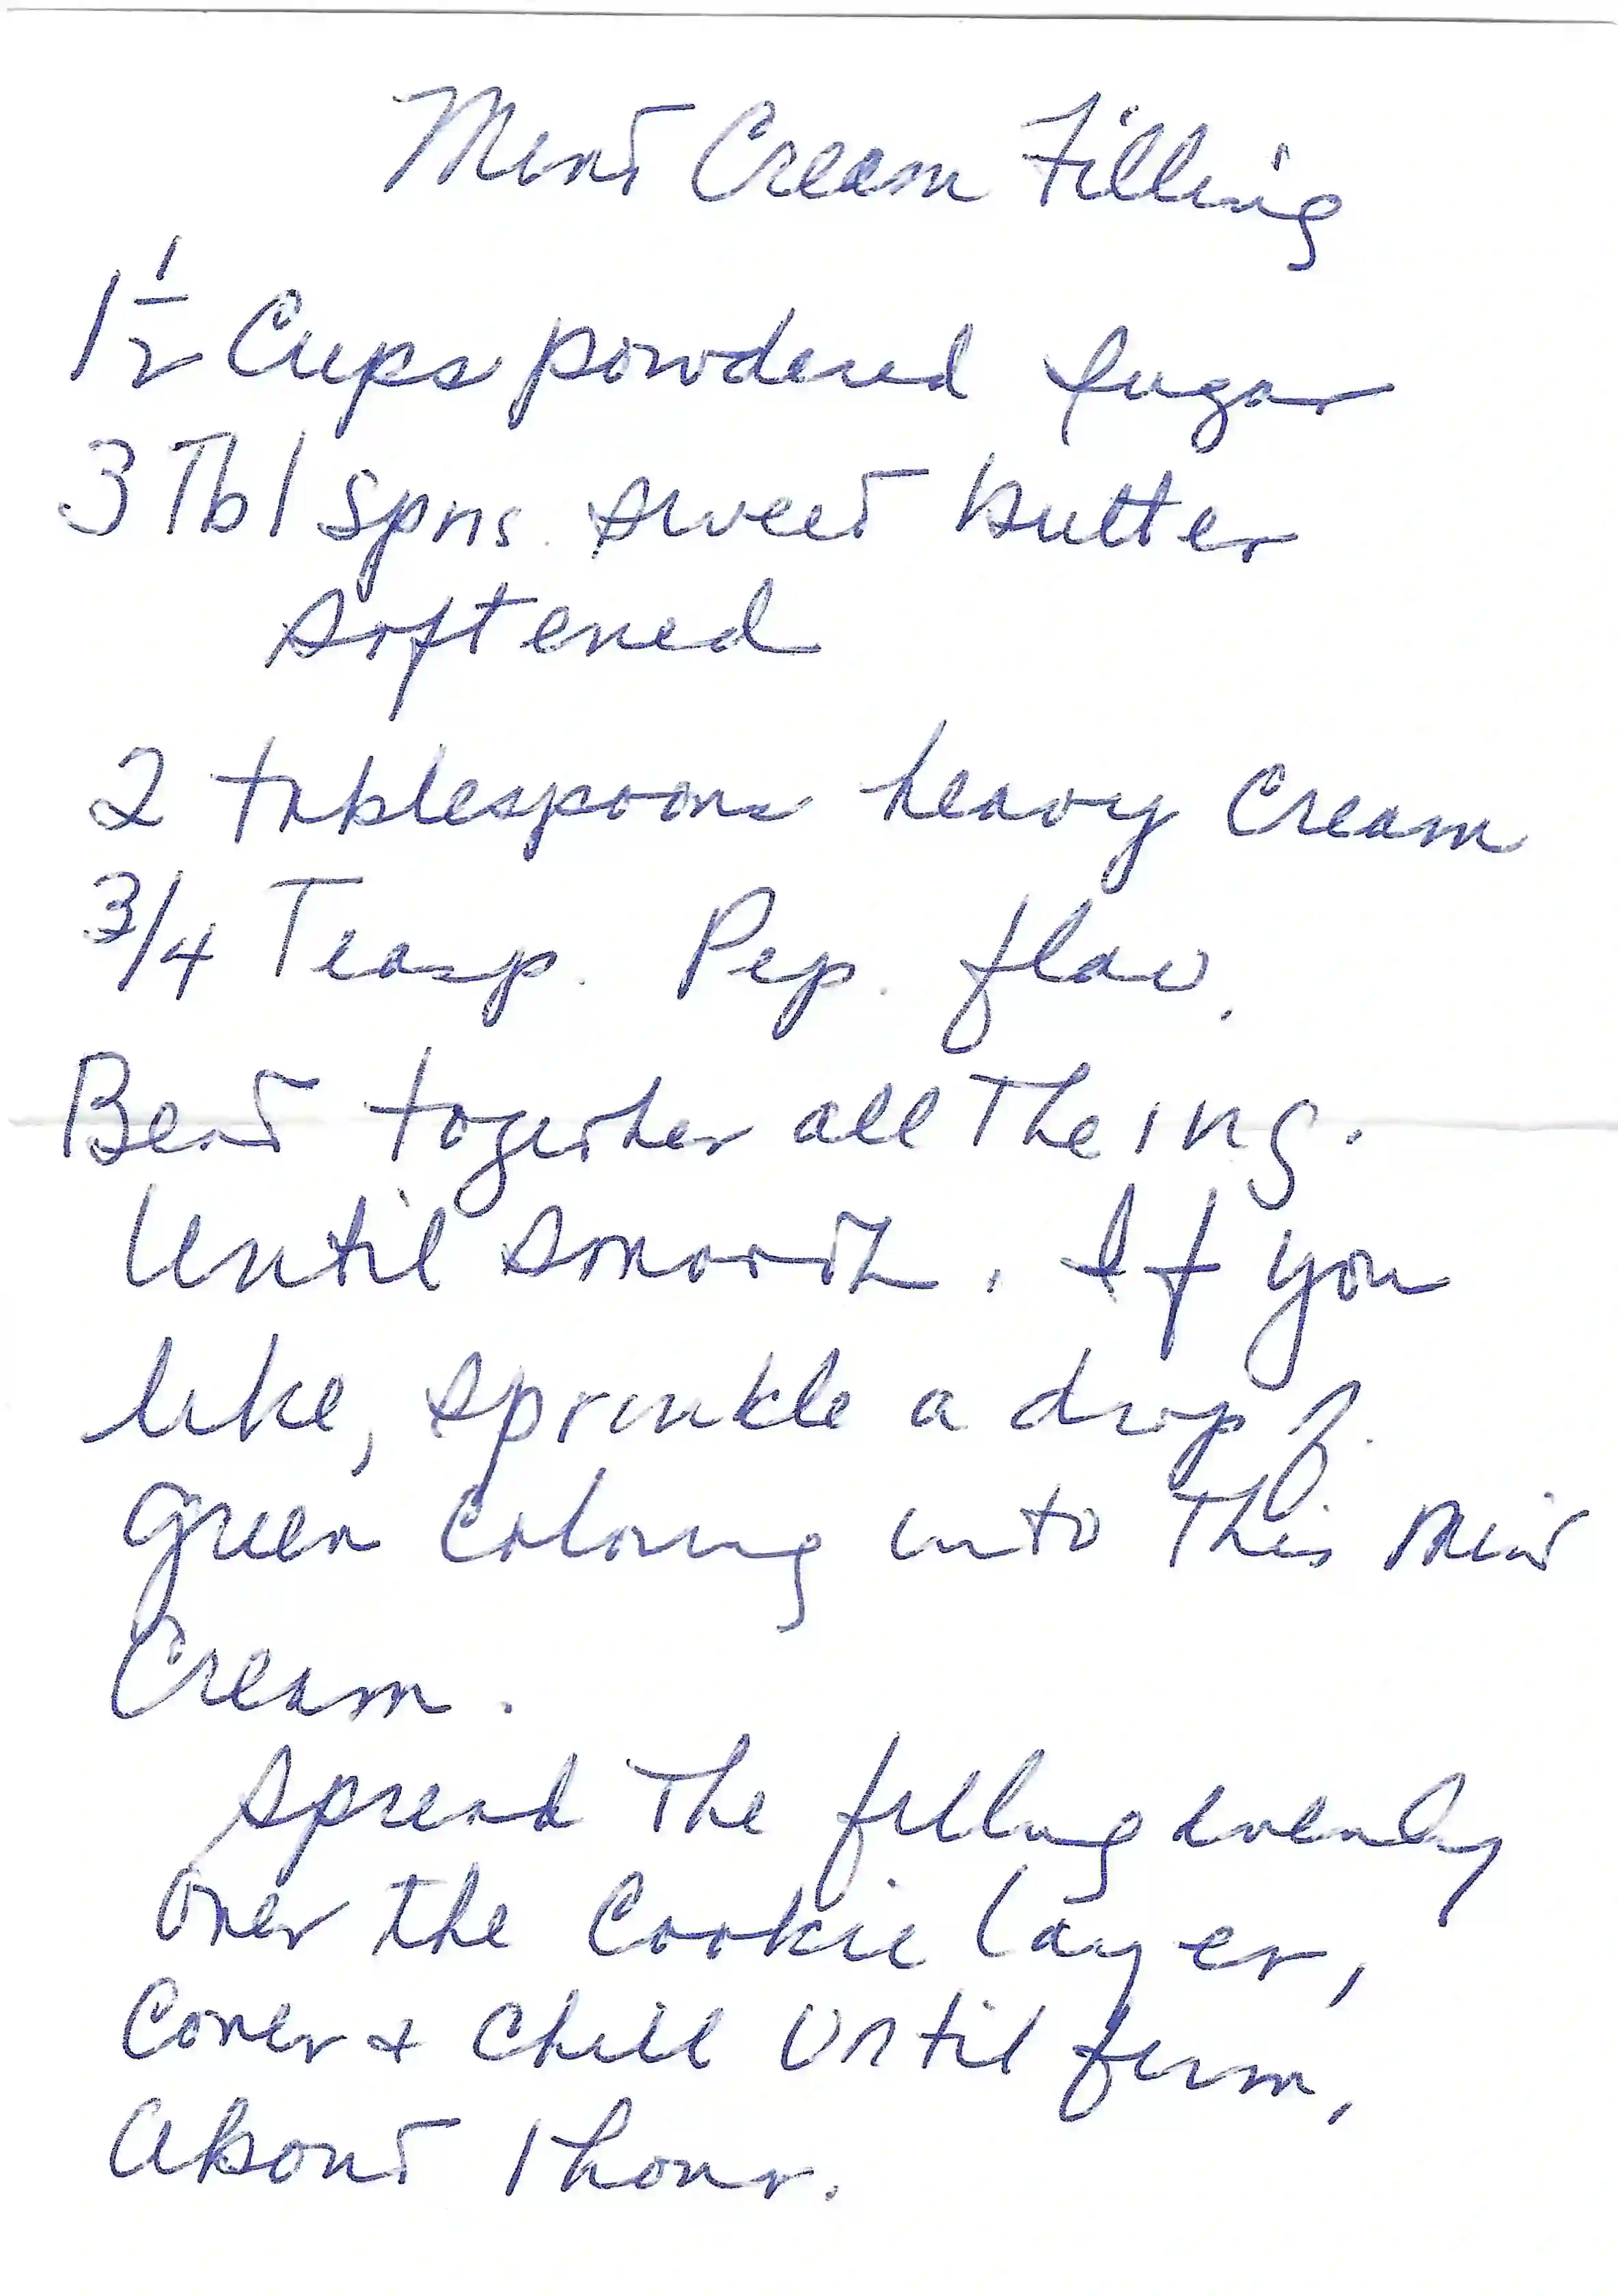 Mint Cream Filling
1 1/2 Cups powdered sugar
3 Tbl spns. sweet butter
softened
2 tablespoons heavy cream
3/4 Teasp. Pep. flav.
Beat together all The ing.
Until smooth. If you
like, sprinkle a drop f.
green coloring into This mint
Cream.
Spread The filling evenly
over the Cookie layer,
Cover & Chill Until firm,
About 1 hour.